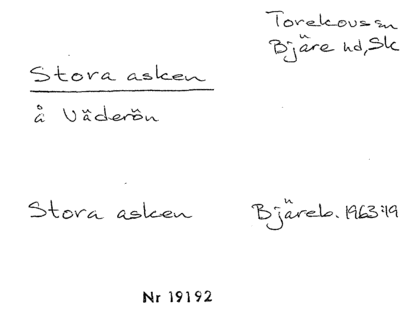 Torekovs sn
Bjäre hd, Sk
Stora asken
å Väderön
Stora asken Bjäreb. 1963:19
Nr 19192